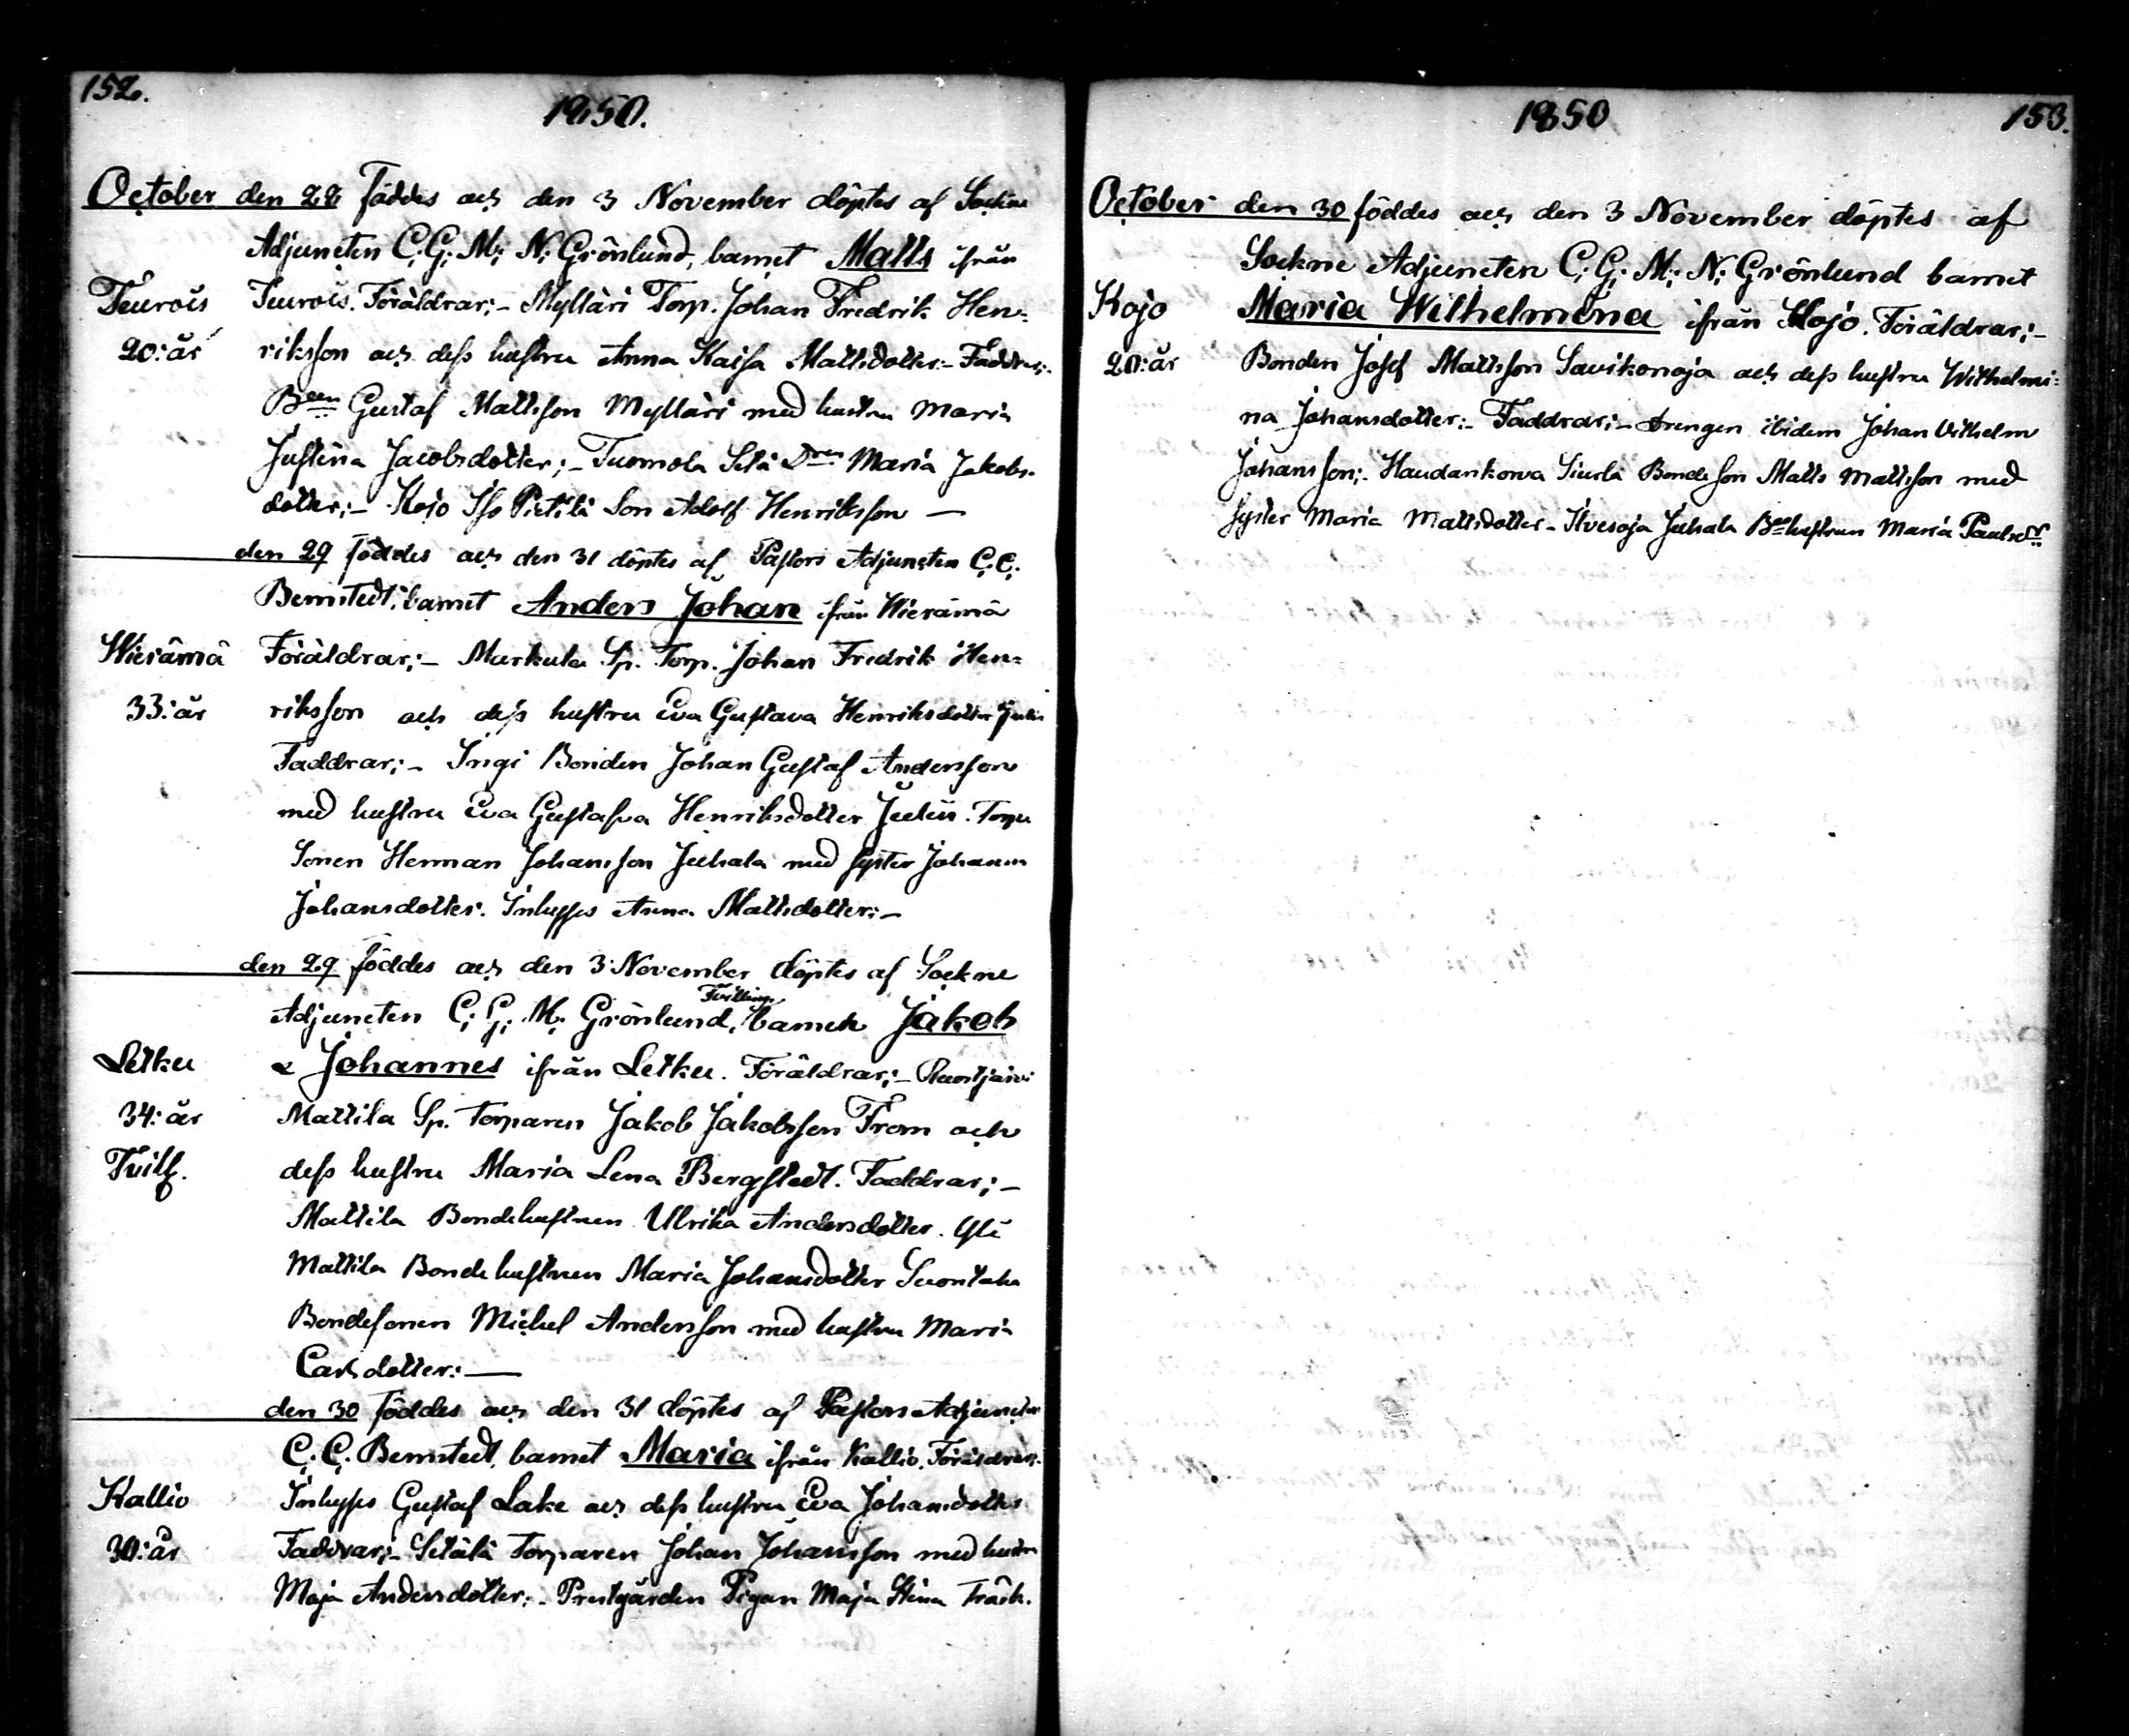 152.
1850.
October den 28 föddes och den 3 November döptes af Sockne
Adjuncten C. G. M. N. Grönlund, barnet Matts ifrån
Teurois Teurois. Föräldrar;- Mylläri Torp. Johan Fredrik Hen-
20: år riksson och dess hustru Anna Kaisa Mattsdotter:- Faddrar;-
Ben Gustaf Mattsson Mylläri med hustru Maria
Justina Jacobsdotter;- Tuomola Setä Dren Maria Jakobs-
dotter;- Kojo Iso Pietilä Son Adolf Henriksson —
den 29 föddes och den 31 döptes af Pastors Adjuncten C. C.
Bernstedt, barnet Anders Johan ifrån Wierämä
Wierämä Föräldrar;- Markula Sp. Torp. Johan Fredrik Hen-
33: år riksson och dess hustru Eva Gustava Henriksdotter
Faddrar;- Ingi Bonden Johan Gustaf Andersson
med hustru Eva Gustafva Henriksdotter Torp
Sonen Herman Johansson Juhala med syster Johanna
Johansdotter. Inhyses Anna Mattsdotter:-
den 29 föddes och den 3 November döptes af Sockne
Adjuncten C. G. M. Grönlund, Tvilling barnen Jakob
Letku & Johannes ifrån Letku. Föräldrar;- Ruostjärvi
34: år Mattila Sp. Torparen Jakob Jakobsson From och
Tvill. dess hustru Maria Lena Bergstedt. Faddrar;-
Mattila Bondehustrun Ulrika Andersdotter. Yli
Mattila Bonde hustrun Maria Johansdotter
Bondesonen Michel Andersson med hustru Maria
Carlsdotter:—
den 30 föddes och den 31 döptes af Pastors Adjuncten
C. C. Bernstedt, barnet Maria ifrån Kallio. Föräldrar;-
Kallio Inhyses Gustaf Lake och dess hustru Eva Johansdotter
30: år Faddrar;- Setälä Torparen Johan Johansson med hustru
Maja Andersdotter;- Prestgården Pigan Maja Stina Träsk.
1850
153.
October den 30 föddes och den 3 November döptes af
Sockne Adjuncten C. G. M. N. Grönlund barnet
Kojo Maria Wilhelmina ifrån Kojo. Föräldrar;-
20: år Bonden Josef Mattsson Savikonoja och dess hustru Wilhelmi-
na Johansdotter:- Faddrar;- Drengen ibidem Johan Vilhelm
Johansson;- Haudankorva Siurla Bonde Son Matts Mattsson med
syster Maria Mattsdotter- Ilvesoja Juhala Be hustrun Maria Paulsdr